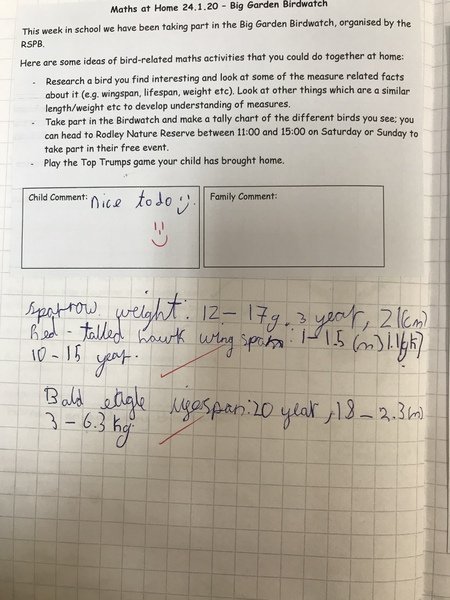 Maths at Home 24.1.20 – Big Garden Birdwatch
This week in school we have been taking part in the Big Garden Birdwatch, organised by the
RSPB.
Here are some ideas of bird-related maths activities that you could do together at home:
- Research a bird you find interesting and look at some of the measure related facts
about it (e.g. wingspan, lifespan, weight etc). Look at other things which are a similar
length/weight etc to develop understanding of measures.
- Take part in the Birdwatch and make a tally chart of the different birds you see; you
can head to Rodley Nature Reserve between 11:00 and 15:00 on Saturday or Sunday to
take part in their free event.
- Play the Top Trumps game your child has brought home.
Child Comment: Nice to do
Family Comment:
sparrow weight: 12-17g. 3 year, 21(cm)
Red-talled hawk wing span: 1-1.5 (m)
10-15 year.
Bald eagle :20 year, 18-2.3m)
3-6.3 kg.